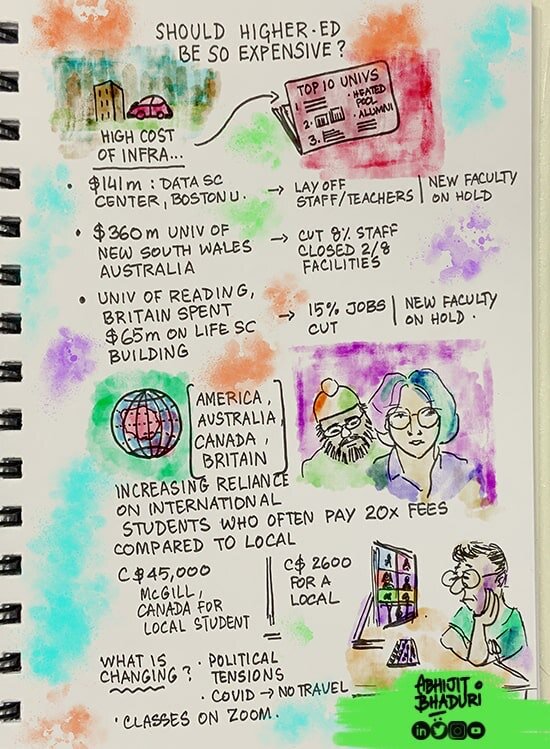 SHOULD HIGHER·ED
BE SO EXPENSIVE?
TOP 10 UNIVS
1.
· HEATED
POOL
2.
· ALUMNI
3.
HIGH COST
OF INFRA...
• $141m : DATA SC
CENTER, BOSTON U. → LAY OFF
STAFF/TEACHERS | NEW FACULTY
ON HOLD
• $360m UNIV OF
NEW SOUTH WALES
AUSTRALIA → CUT 8% STAFF
CLOSED 2/8
FACILITIES
• UNIV OF READING,
BRITAIN SPENT
$65m ON LIFE SC
BUILDING → 15% JOBS
CUT | NEW FACULTY
ON HOLD.
[AMERICA,
AUSTRALIA,
CANADA,
BRITAIN]
INCREASING RELIANCE
ON INTERNATIONAL
STUDENTS WHO OFTEN PAY 20x FEES
COMPARED TO LOCAL
C$45,000
McGILL,
CANADA FOR
LOCAL STUDENT
C$ 2600
FOR A
LOCAL
WHAT IS
CHANGING?
· POLITICAL
TENSIONS
· COVID → NO TRAVEL →
· CLASSES ON ZOOM.
ABHIJIT
BHADURI